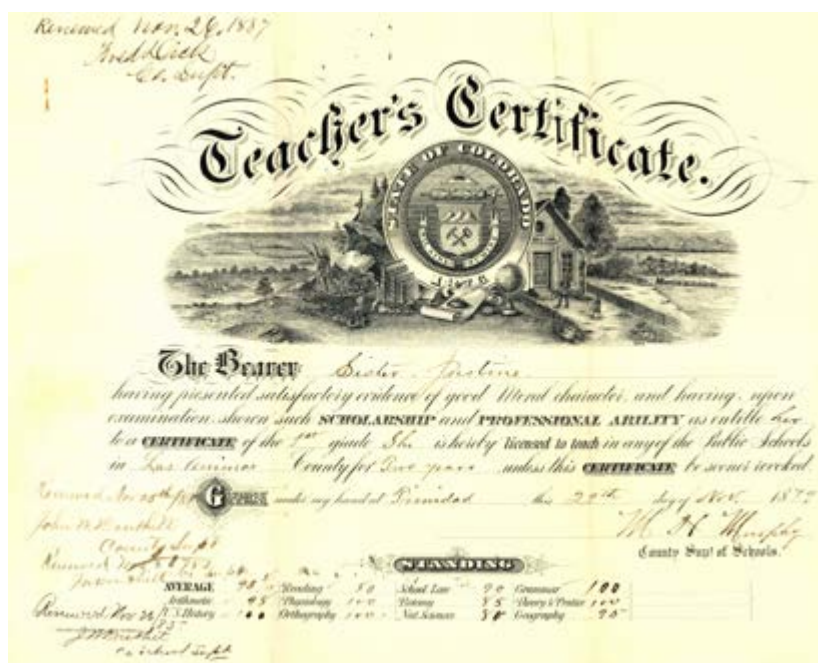 Renewed Nov. 26, 1887
Fred Dick
Co. Supt.
Teacher's Certificate.
STATE OF COLORADO
1876
The Bearer Sister Justina
having presented satisfactory evidence of good Moral character, and having, upon
examination, shown such SCHOLARSHIP and PROFESSIONAL ABILITY as entitle her
to a CERTIFICATE of the 1st grade She is hereby licensed to teach in any of the Public Schools
in Las Animas County for Two years unless this CERTIFICATE be sooner revoked
Renewed Nov
GIVEN under my hand at Trinidad this 29th day of Nov. 1879
John
County Supt
M H Murphy
County Supt of Schools.
Renewed
STANDING
AVERAGE Reading 80 School Law 90 Grammar 100
Arithmetic 95 Physiology 100 Botany 85 Theory & Practice 100
U.S. History 100 Orthography 100 Nat. Sciences 80 Geography 95
Renewed Nov 26
Co School Supt